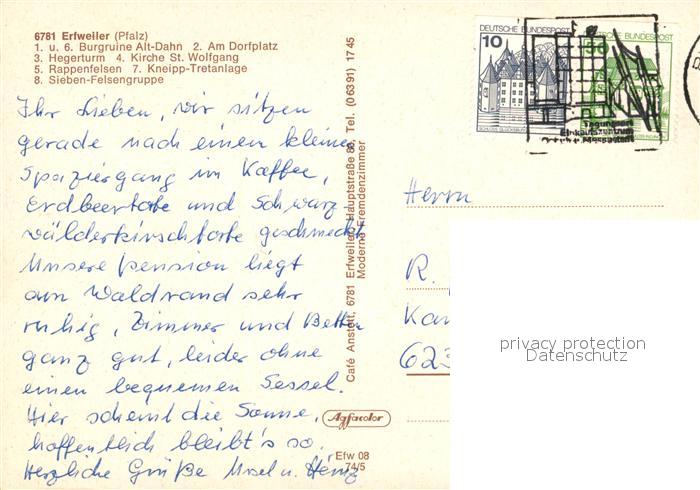 6781 Erfweiler (Pfalz)
1. u. 6. Burgruine Alt-Dahn 2. Am Dorfplatz
3. Hegerturm 4. Kirche St. Wolfgang
5. Rappenfelsen 7. Kneipp-Tretanlage
8. Sieben-Felsengruppe
Ihr Lieben, wir sitzen
gerade nach einen kleinen
Spaziergang im Kaffee,
Erdbeertorte und Schwarz-
wälderkirschtorte geschmeckt
Unsere Pension liegt
am Waldrand sehr
ruhig, Zimmer und Betten
ganz gut, leider ohne
einen bequemen Sessel.
Hier scheint die Sonne,
hoffentlich bleibt's so.
Herzliche Grüße Ursel u. Heinz
Café Anstett, 6781 Erfweiler, Hauptstraße 88, Tel. (0 63 91) 17 45
Moderne Fremdenzimmer
Agfacolor
Efw 08
74/5
DEUTSCHE BUNDESPOST
10
SCHLOSS GLÜCKSBURG
DEUTSCHE BUNDESPOST
50
Tagungsort
Einkaufszentrum
Herrn
R.
Kar
623
privacy protection
Datenschutz